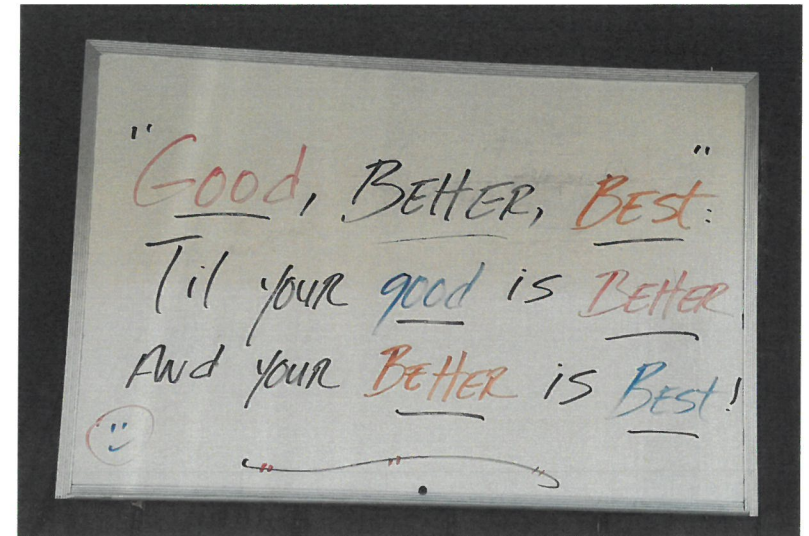 "Good, BETTER, BEST:"
Til your good is BETTER
And your BETTER is BEST!